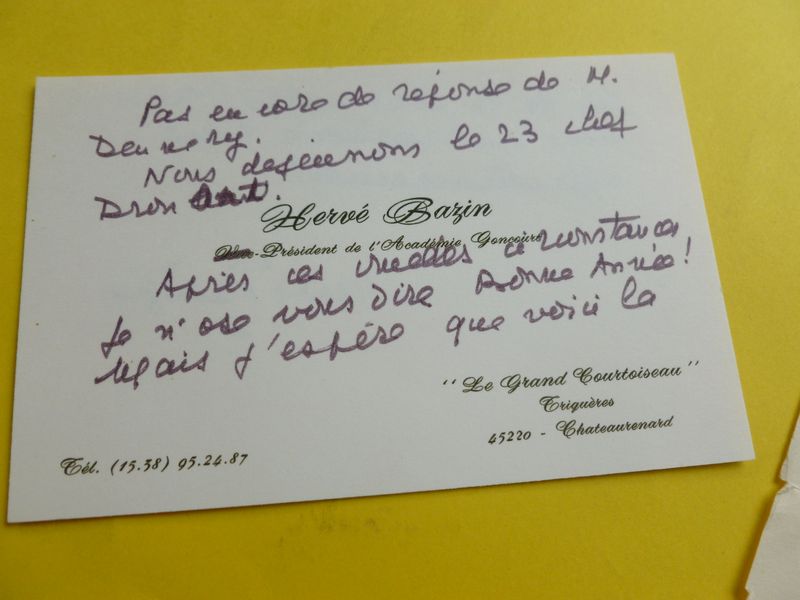 Pas encore de réponse de M.
Denuery.
Nous déjeunons le 23 chez
Drouant.
Hervé Bazin
Vice-Président de l'Académie Goncourt
Après ces cruelles circonstances
Je n'ose vous dire Bonne Année!
Mais j'espère que voici la
"Le Grand Courtoiseau"
Triguères
45220 - Chateaurenard
Tél. (15.38) 95.24.87